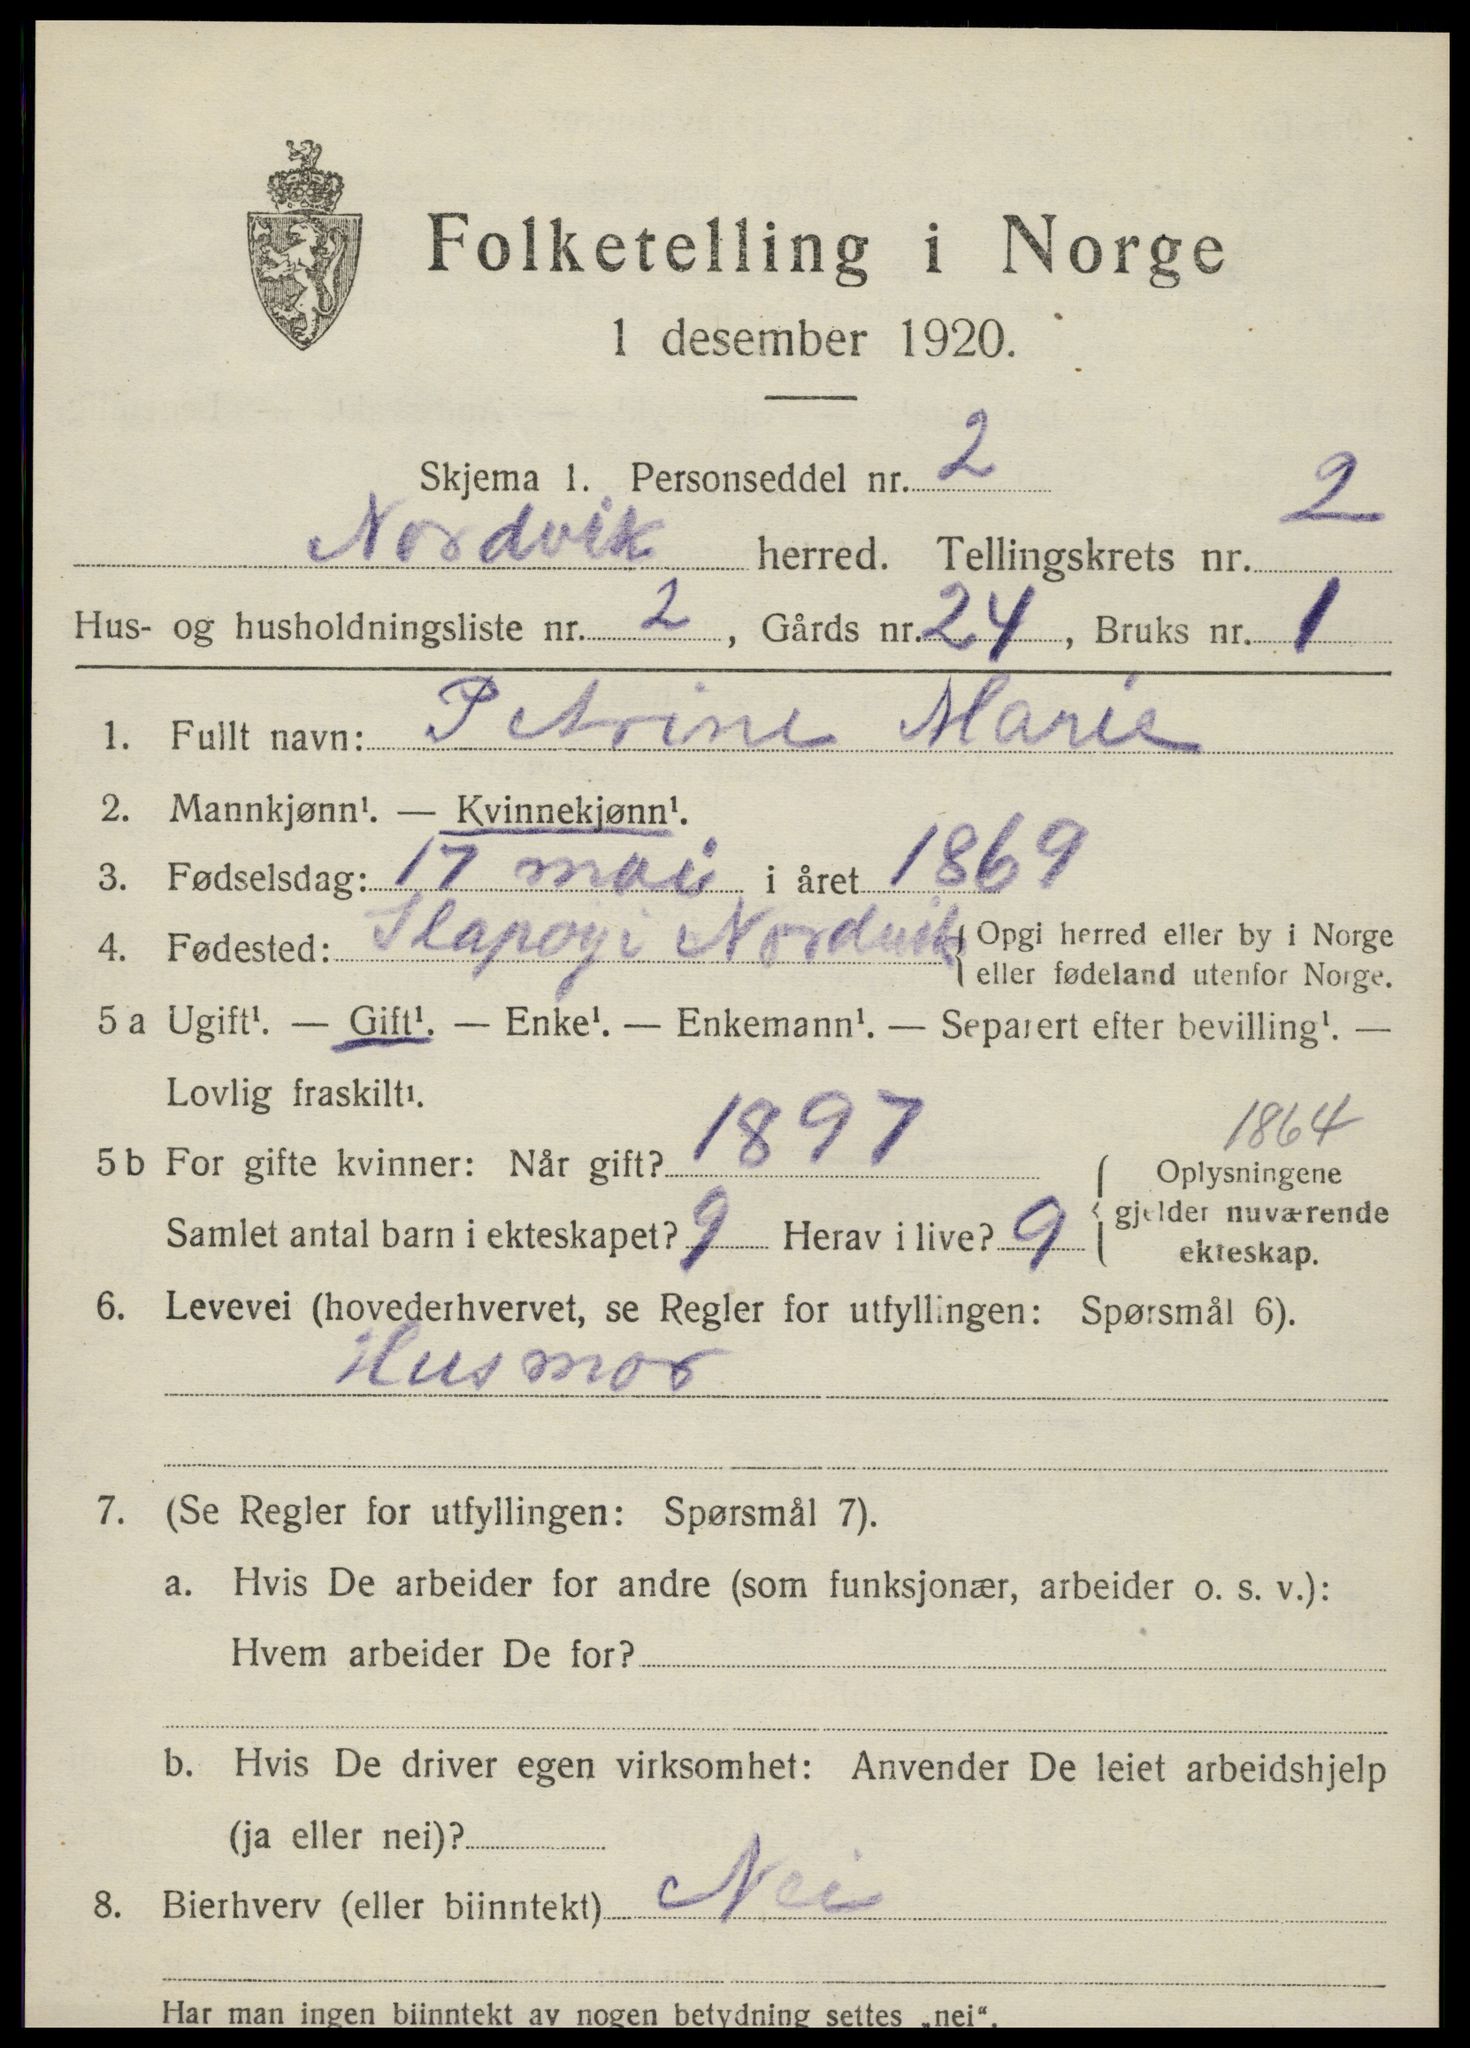 Folketelling i Norge
1 desember 1920.
Skjema 1. Personseddel nr. 2
Nordvik herred. Tellingskrets nr. 2
Hus- og husholdningsliste nr. 2, Gårds nr. 24, Bruks nr. 1
1. Fullt navn: Petrine Marie
2. Mannkjønn¹. — Kvinnekjønn¹.
3. Fødselsdag: 17 mai i året 1869
4. Fødested: Nordvik { Opgi herred eller by i Norge
eller fødeland utenfor Norge.
5 a Ugift¹. — Gift¹. — Enke¹. — Enkemann¹. — Separert efter bevilling¹. —
Lovlig fraskilt¹.
1864
5 b For gifte kvinner: Når gift? 1897 { Oplysningene
Samlet antal barn i ekteskapet? 9 Herav i live? 9 gjelder nuværende
ekteskap.
6. Levevei (hovederhvervet, se Regler for utfyllingen: Spørsmål 6).
Husmor
7. (Se Regler for utfyllingen: Spørsmål 7).
a. Hvis De arbeider for andre (som funksjonær, arbeider o. s. v.):
Hvem arbeider De for?
b. Hvis De driver egen virksomhet: Anvender De leiet arbeidshjelp
(ja eller nei)?
8. Bierhverv (eller biinntekt) Nei
Har man ingen biinntekt av nogen betydning settes „nei“.